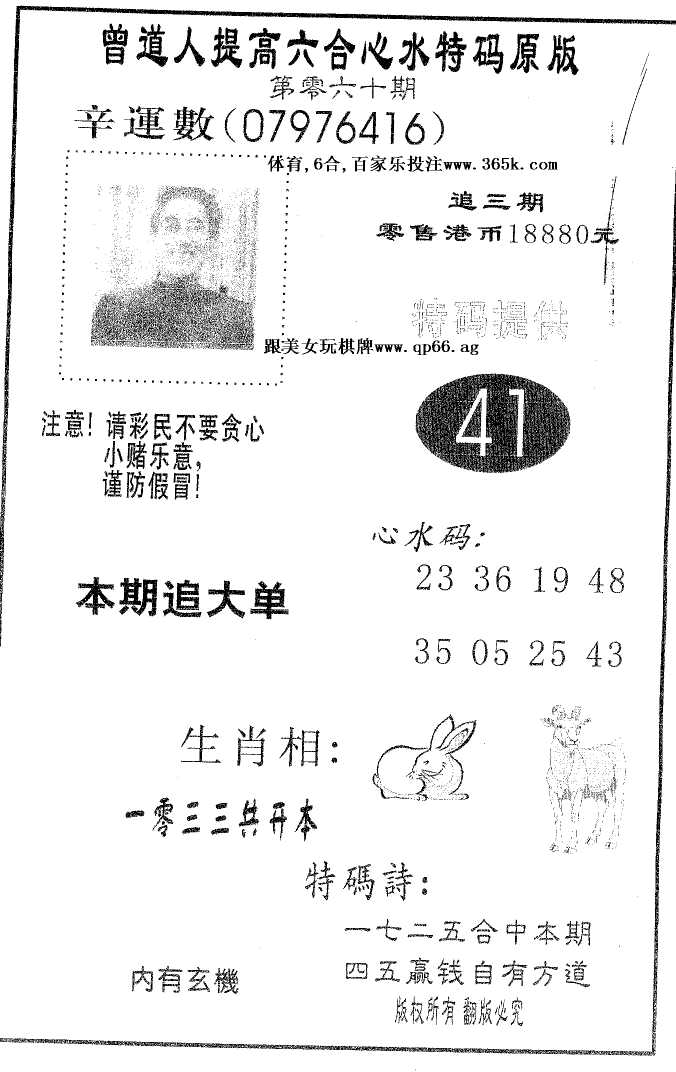 曾道人提高六合心水特码原版
第零六十期
辛運數(07976416)
体育,6合,百家乐投注www.365k.com
追三期
零售港币18880元
特码提供
跟美女玩棋牌www.qp66.ag
41
注意!请彩民不要贪心
小赌乐意,
谨防假冒!
心水码:
23 36 19 48
本期追大单
35 05 25 43
生肖相:
一零三三共开本
特碼詩:
一七二五合中本期
四五赢钱自有方道
内有玄機
版权所有 翻版必究